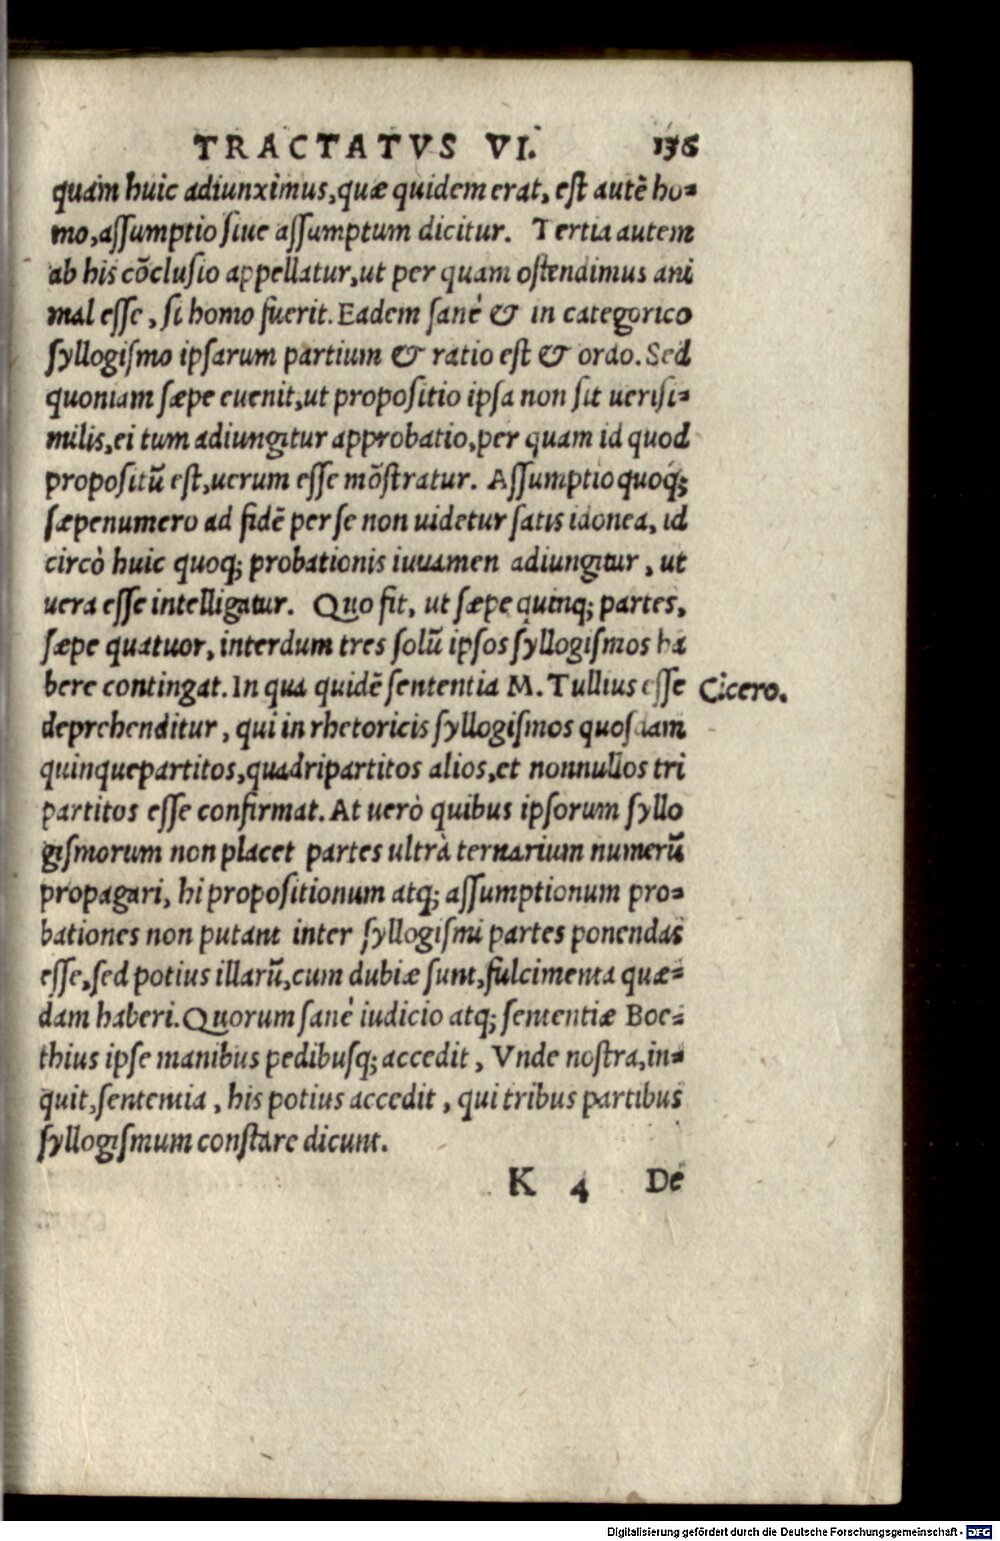 TRACTATVS VI. 136
quàm huic adiunximus, quæ quidem erat, est autē ho-
mo, assumptio siue assumptum dicitur. Tertia autem
ab his cōclusio appellatur, ut per quam ostendimus ani
mal esse, si homo fuerit. Eadem sanè & in categorico
syllogismo ipsarum partium & ratio est & ordo. Sed
quoniam sæpe euenit, ut propositio ipsa non sit uerisi-
milis, ei tum adiungitur approbatio, per quam id quod
propositū est, uerum esse mōstratur. Assumptio quoq;
sæpenumero ad fidē per se non uidetur satis idonea, id
circò huic quoq; probationis iuuamen adiungitur, ut
uera esse intelligatur. Quo fit, ut sæpe quinq; partes,
sæpe quatuor, interdum tres solū ipsos syllogismos ha
bere contingat. In qua quidē sententia M. Tullius esse
Cicero.
deprehenditur, qui in rhetoricis syllogismos quosdam
quinquepartitos, quadripartitos alios, et nonnullos tri
partitos esse confirmat. At uerò quibus ipsorum syllo
gismorum non placet partes ultrà ternarium numerū
propagari, hi propositionum atq; assumptionum pro-
bationes non putant inter syllogismi partes ponendas
esse, sed potius illarū, cum dubiæ sunt, fulcimenta quæ-
dam haberi. Quorum sanè iudicio atq; sententiæ Boe-
thius ipse manibus pedibusq; accedit, Vnde nostra, in-
quit, sententia, his potius accedit, qui tribus partibus
syllogismum constare dicunt.
K 4 De
Digitalisierung gefördert durch die Deutsche Forschungsgemeinschaft - DFG